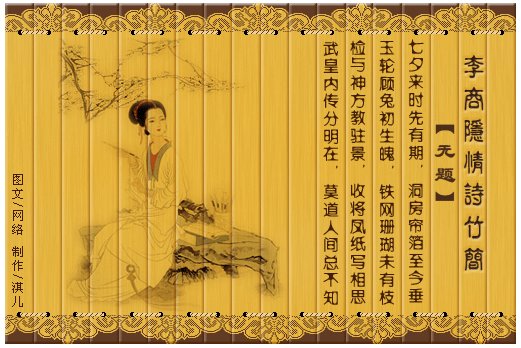 李商隱情詩竹簡
【无题】
七夕来时先有期，洞房帘箔至今垂
玉轮顾兔初生魄，铁网珊瑚未有枝
检与神方教驻景，收将凤纸写相思
武皇内传分明在，莫道人间总不知
图文/网络 制作/淇儿